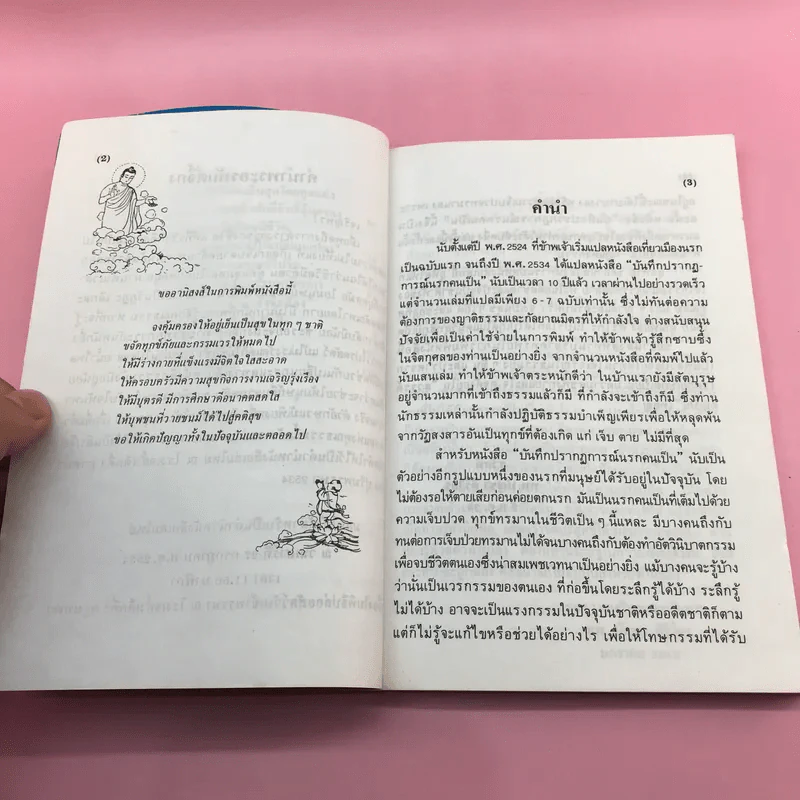 (2)
ขออานิสงส์ในการพิมพ์หนังสือนี้
จงคุ้มครองให้อยู่เย็นเป็นสุขในทุก ๆ ชาติ
ขจัดทุกข์ภัยและกรรมเวรให้หมดไป
ให้มีร่างกายที่แข็งแรงมีจิตใจใสสะอาด
ให้ครอบครัวมีความสุขกิจการงานเจริญรุ่งเรือง
ให้มีบุตรดี มีการศึกษาดีอนาคตสดใส
ให้บุพชนที่วายชนม์ได้ไปสู่คติสุข
ขอให้เกิดปัญญาทั้งในปัจจุบันและตลอดไป
(3)
คำนำ
นับตั้งแต่ปี พ.ศ. 2524 ที่ข้าพเจ้าเริ่มแปลหนังสือเที่ยวเมืองนรก
เป็นฉบับแรก จนถึงปี พ.ศ. 2534 ได้แปลหนังสือ “บันทึกปรากฏ-
การณ์นรกคนเป็น” นับเป็นเวลา 10 ปีแล้ว เวลาผ่านไปอย่างรวดเร็ว
แต่จำนวนเล่มที่แปลมีเพียง 6 - 7 ฉบับเท่านั้น ซึ่งไม่ทันต่อความ
ต้องการของญาติธรรมและกัลยาณมิตรที่ให้กำลังใจ ต่างสนับสนุน
ปัจจัยเพื่อเป็นค่าใช้จ่ายในการพิมพ์ ทำให้ข้าพเจ้ารู้สึกซาบซึ้ง
ในจิตกุศลของท่านเป็นอย่างยิ่ง จากจำนวนหนังสือที่พิมพ์ไปแล้ว
นับแสนเล่ม ทำให้ข้าพเจ้าตระหนักดีว่า ในบ้านเรายังมีสัตบุรุษ
อยู่จำนวนมากที่เข้าถึงธรรมแล้วก็มี ที่กำลังจะเข้าถึงก็มี ซึ่งท่าน
นักธรรมเหล่านั้นกำลังปฏิบัติธรรมบำเพ็ญเพียรเพื่อให้หลุดพ้น
จากวัฏสงสารอันเป็นทุกข์ที่ต้องเกิด แก่ เจ็บ ตาย ไม่มีที่สุด
สำหรับหนังสือ “บันทึกปรากฏการณ์นรกคนเป็น” นับเป็น
ตัวอย่างอีกรูปแบบหนึ่งของนรกที่มนุษย์ได้รับอยู่ในปัจจุบัน โดย
ไม่ต้องรอให้ตายเสียก่อนค่อยตกนรก มันเป็นนรกคนเป็นที่เต็มไปด้วย
ความเจ็บปวด ทุกข์ทรมานในชีวิตเป็น ๆ นี้แหละ มีบางคนถึงกับ
ทนต่อการเจ็บป่วยทรมานไม่ได้จนบางคนถึงกับต้องทำอัตวินิบาตกรรม
เพื่อจบชีวิตตนเองซึ่งน่าสมเพชเวทนาเป็นอย่างยิ่ง แม้บางคนจะรู้บ้าง
ว่านั่นเป็นเวรกรรมของตนเอง ที่ก่อขึ้นโดยระลึกรู้ได้บ้าง ระลึกรู้
ไม่ได้บ้าง อาจจะเป็นแรงกรรมในปัจจุบันชาติหรืออดีตชาติก็ตาม
แต่ก็ไม่รู้จะแก้ไขหรือช่วยได้อย่างไร เพื่อให้โทษกรรมที่ได้รับ